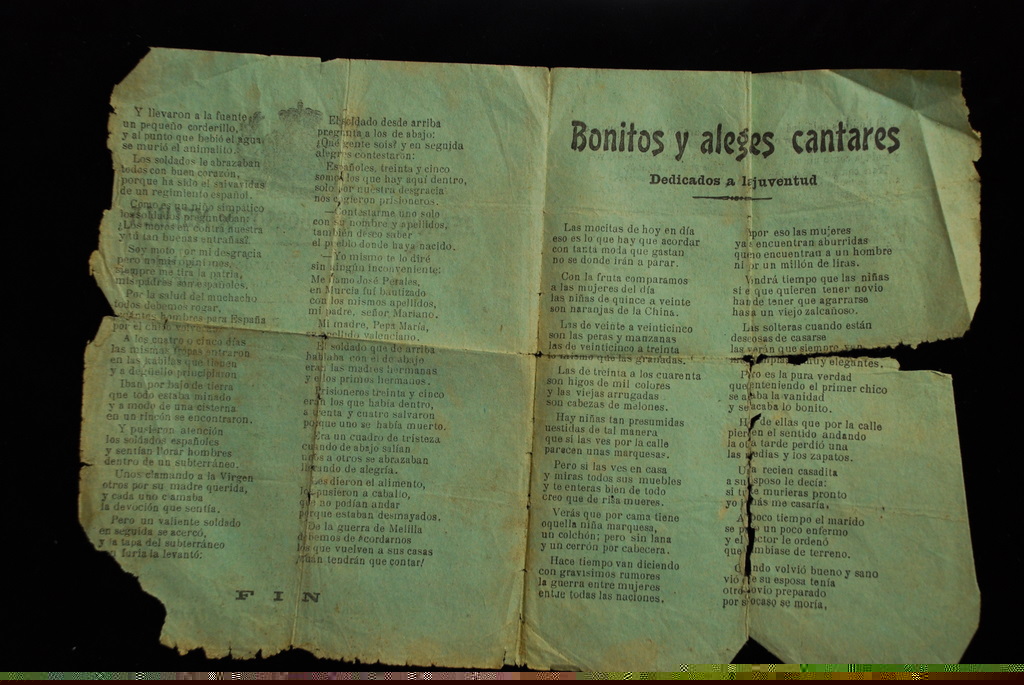 Y llevaron a la fuente
un pequeño corderillo,
y al punto que bebió el agua
se murió el animalito.
Los soldados le abrazaban
todos con buen corazón,
porque ha sido el salvavidas
de un regimiento español.
Como es un niño simpático
los soldados le preguntaban:
¿Los moros en contra nuestra
y tú tan buenas entrañas?
Soy moro por mi desgracia
pero no
siempre me tira la patria,
mis padres son españoles,
Por la salud del muchacho
todos debemos rogar,
hombres para España
por el chico
A los cuatro o cinco días
las mismas tropas entraron
en las kabilas que tienen
y a degüello principiaron
Iban por bajo de tierra
que todo estaba minado
y a modo de una cisterna
en un rincón se encontraron.
Y pusieron atención
los soldados españoles
y sentían llorar hombres
dentro de un subterráneo.
Unos clamando a la Virgen
otros por su madre querida,
y cada uno clamaba
la devoción que sentía.
Pero un valiente soldado
en seguida se acercó,
y la tapa del subterráneo
con furia la levantó:
El soldado desde arriba
pregunta a los de abajo:
¿Qué gente sois? y en seguida
alegres contestaron:
Españoles, treinta y cinco
somos los que hay aquí dentro,
solo por nuestra desgracia
nos cogieron prisioneros.
—Contestarme uno solo
con su nombre y apellidos,
también deseo saber
el pueblo donde haya nacido.
—Yo mismo te lo diré
sin ningún inconveniente:
Me llamo José Perales,
en Murcia fuí bautizado
con los mismos apellidos,
mi padre, señor Mariano.
Mi madre, Pepa María,
apellido valenciano.
El soldado que de arriba
hablaba con el de abajo
eran las madres hermanas
y ellos primos hermanos.
Prisioneros treinta y cinco
eran los que había dentro,
a treinta y cuatro salvaron
porque uno se había muerto.
Era un cuadro de tristeza
cuando de abajo salían
unos a otros se abrazaban
llorando de alegría.
Les dieron el alimento,
los pusieron a caballo,
que no podían andar
porque estaban desmayados,
De la guerra de Melilla
debemos de acordarnos
los que vuelven a sus casas
¡Cuán tendrán que contar!
FIN
Bonitos y aleges cantares
Dedicados a la juventud
Las mocitas de hoy en día
eso es lo que hay que acordar
con tanta moda que gastan
no se donde irán a parar.
Con la fruta comparamos
a las mujeres del día
las niñas de quince a veinte
son naranjas de la China.
Las de veinte a veinticinco
son las peras y manzanas
las de veinticinco a treinta
lo mismo que las granadas.
Las de treinta a los cuarenta
son higos de mil colores
y las viejas arrugadas
son cabezas de melones.
Hay niñas tan presumidas
uestidas de tal manera
que si las ves por la calle
parecen unas marquesas.
Pero si las ves en casa
y miras todos sus muebles
y te enteras bien de todo
creo que de risa mueres.
Verás que por cama tiene
oquella niña marquesa,
un colchón; pero sin lana
y un cerrón por cabecera.
Hace tiempo van diciendo
con gravísimos rumores
la guerra entre mujeres
entre todas las naciones.
por eso las mujeres
ya se encuentran aburridas
que no encuentran a un hombre
ni por un millón de liras.
Vendrá tiempo que las niñas
si es que quieren tener novio
han de tener que agarrarse
hasta un viejo zalcañoso.
Las solteras cuando están
deseosas de casarse
las verán que siempre van
muy elegantes.
Pero es la pura verdad
que en teniendo el primer chico
se acaba la vanidad
y se acaba lo bonito.
Hay de ellas que por la calle
pierden el sentido andando
la otra tarde perdió una
las medias y los zapatos.
Una recien casadita
a su esposo le decía:
si tú te murieras pronto
yo jamás me casaría,
A poco tiempo el marido
se puso un poco enfermo
y el doctor le ordenó
que cambiase de terreno.
Cuando volvió bueno y sano
vió que su esposa tenía
otro novio preparado
por si acaso se moría,